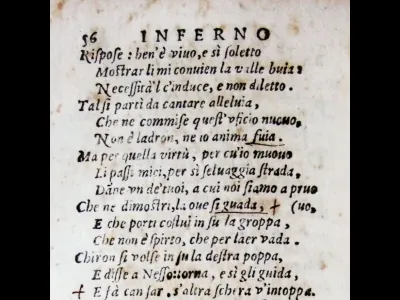 56 INFERNO
Rispose: ben'è viuo, e sì soletto
Mostrar li mi conuien la valle buia:
Necessità'l c'induce, e non diletto.
Tal si partì da cantare alleluia,
Che ne commise quest'vficio nuouo,
Non è ladron, ne io anima fuia.
Ma per quella virtù, per cu'io muouo
Li passi miei, per sì seluaggia strada,
Danne vn de'tuoi, a cui noi siamo a pruo
Che ne dimostri, la oue si guada, + (uo,
E che porti costui in su la groppa,
Che non è spirto, che per l'aer vada.
Chiron si volse in su la destra poppa,
E disse a Nesso: torna, e sì gli guida,
+ E fà cansar, s'altra schera v'intoppa.